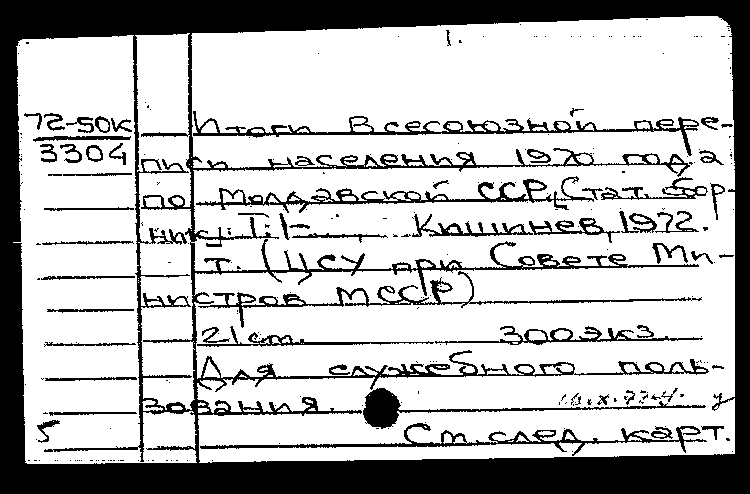 1.
72-50к
3304
Итоги Всесоюзной пере-
писи населения 1970 года
по Молдавской ССР. Стат. сбор-
ник. Т. 1-
Кишинёв, 1972.
т. (ЦСУ при Совете Ми-
нистров МССР)
21 см. 300 экз.
Для служебного поль-
зования.
5
См. след. карт.